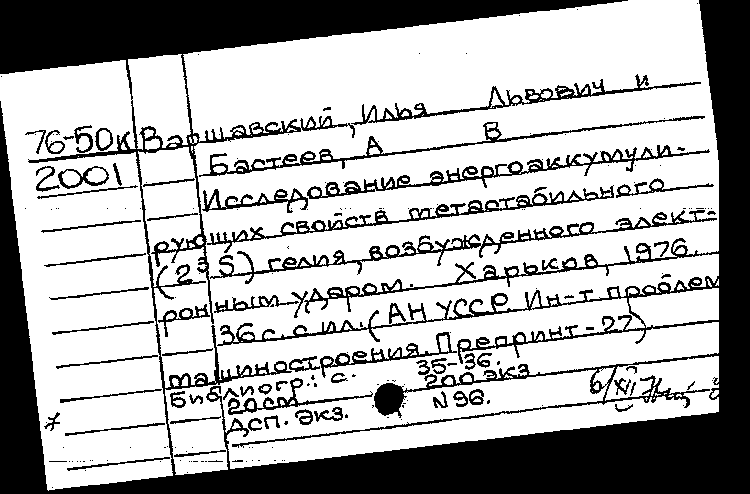 76-50к Варшавский, Илья Львович и
2001 Бастеев, А В
Исследование энергоаккумули-
рующих свойств метастабильного
(2³S) гелия, возбужденного элект-
ронным ударом. Харьков, 1976.
36 с. с ил. (АН УССР. Ин-т проблем
машиностроения. Препринт-27)
Библиогр.: с. 35-36.
20 см 200 экз.
ДСП. экз. N 96.
6/XII